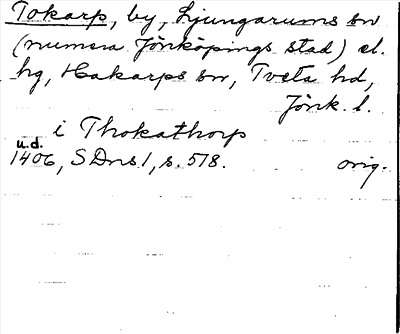 Tokarp, by, Ljungarums sn
(numera Jönköpings stad) el.
hg, Hakarps sn, Tveta hd,
Jönk. l.
i Thokathorp
u.d.
1406, SDns 1, s. 578. orig.